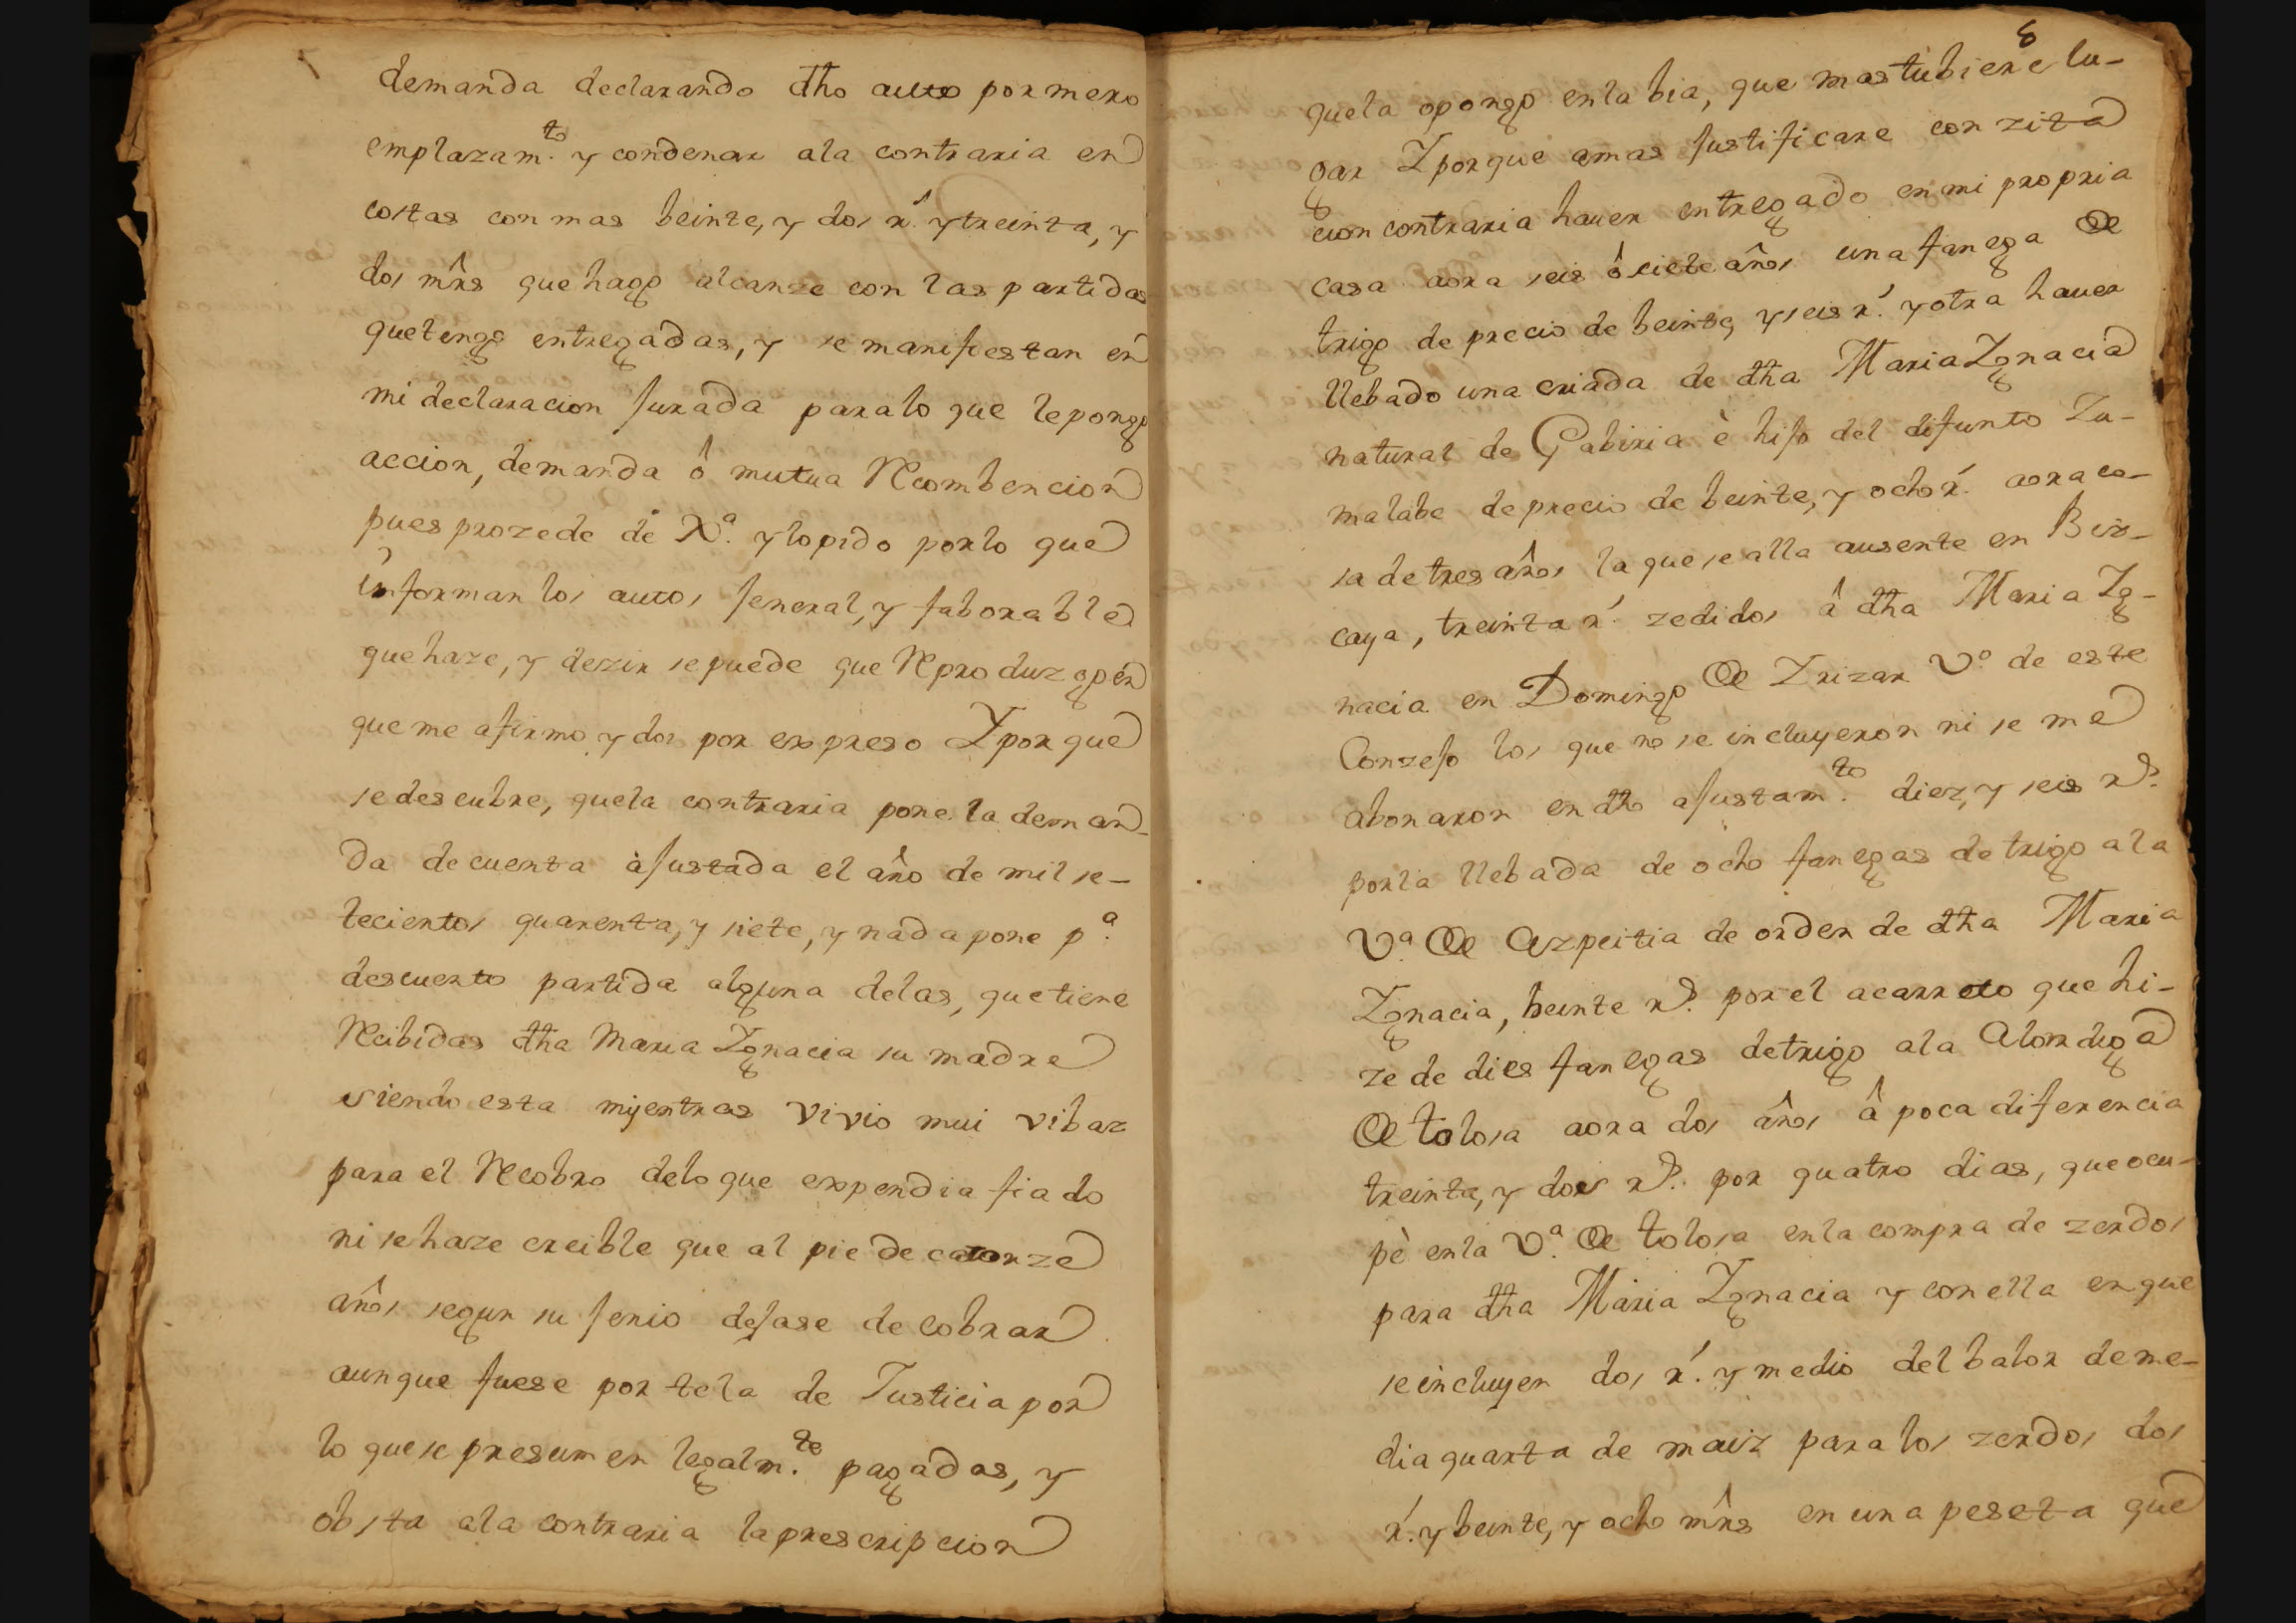 demanda declarando dho auto por mero
emplazam.to y condenar ala contraria en
costas con mas beinte, y dos r.s y treinta, y
dos mrs que hago alcanze con las partidas
que tengo entregadas, y se manifiestan en
mi declaracion jurada para lo que le pongo
accion, demanda ô mutua Recombencion
pues prozede de X.a y lo pido por lo que
informan los autos jeneral, y faborable
que haze, y dezir se puede que Reproduzgo en
que me afirmo y doi por expreso Y por que
se descubre, que la contraria pone la deman-
da de cuenta ajustada el año de mil se-
tecientos quarenta, y siete, y nada pone p.a
descuento partida alguna delas, que tiene
Recibidas dha Maria Ygnacia su madre
siendo esta mientras vivio mui vibaz
para el Recobro delo que expendia fiado
ni se haze creible que al pie de catorze
años segun su jenio dejase de cobrar
aunque fuese por tela de Justicia por
lo que se presumen legalm.te pagadas, y
obsta ala contraria la prescripcion
8
que la opongo en la bia, que mas tubiere lu-
gar Y porque amas justificare con zita
cion contraria haver entregado en mi propria
casa aora seis ô siete años una fanega de
trigo de precio de beinte, y seis r.s y otra haver
llebado una criada de dha Maria Ygnacia
natural de Gabiria è hijo del difunto Zu-
malabe de precio de beinte, y ocho r.s aora co-
sa de tres años la que se alla ausente en Biz-
caya, treinta r.s zedidos â dha Maria Yg-
nacia en Domingo de Yrizar V.o de este
Conzejo los que no se incluyeron ni se me
abonaron en dho ajustam.to diez, y seis r.s
por la llebada de ocho fanegas de trigo ala
V.a de Azpeitia de orden de dha Maria
Ygnacia, beinte r.s por el acarreto que hi-
ze de dies fanegas de trigo ala Alondiga
de tolosa aora dos años â poca diferencia
treinta, y dos r.s por quatro dias, que ocu-
pè en la V.a de tolosa en la compra de zerdos
para dha Maria Ygnacia y con ella en que
se incluyen dos r.s y medio del balor de me-
dia quarta de maiz para los zerdos dos
r.s y beinte, y ocho mrs en una peseta que